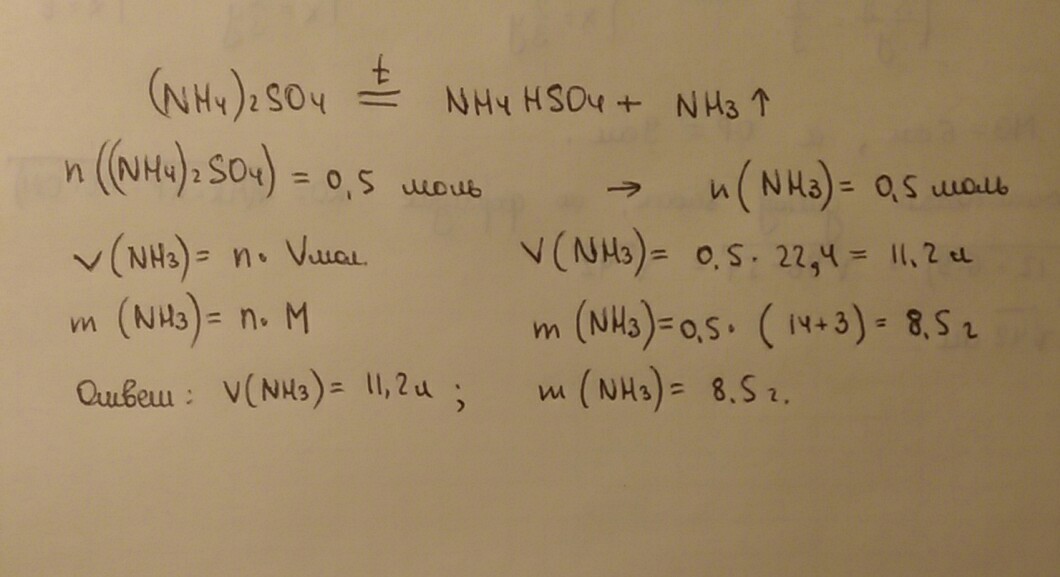 (NH4)2SO4 t= NH4HSO4 + NH3↑
n((NH4)2SO4) = 0,5 моль → n(NH3) = 0,5 моль
V(NH3) = n· Vмол. V(NH3) = 0.5· 22,4 = 11,2 л
m (NH3) = n· M m (NH3) = 0,5· (14+3) = 8.5 г
Ответ: V(NH3) = 11,2 л ; m (NH3) = 8.5 г.